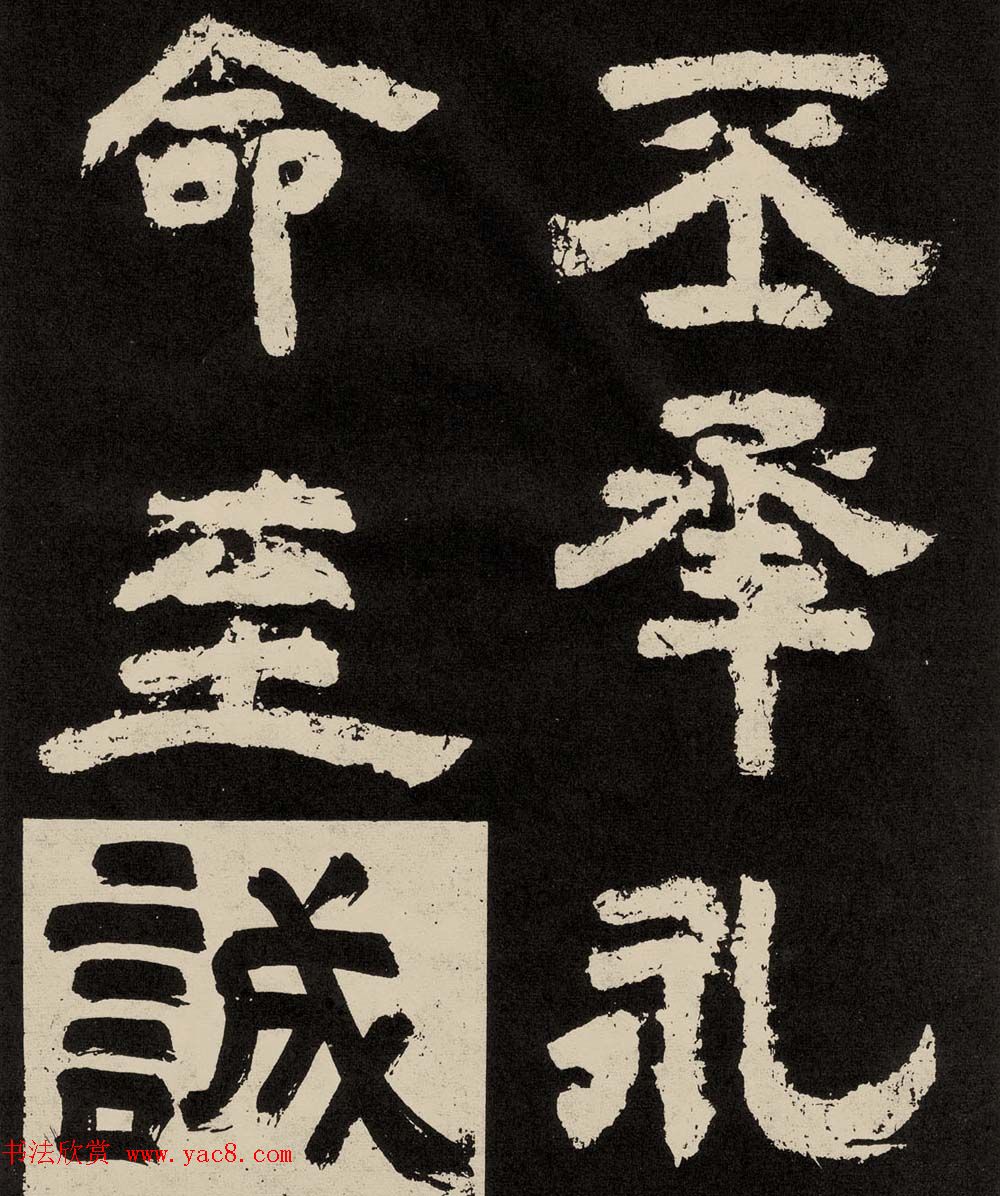 丕承礼
命至誠
书法欣赏 www.yac8.com